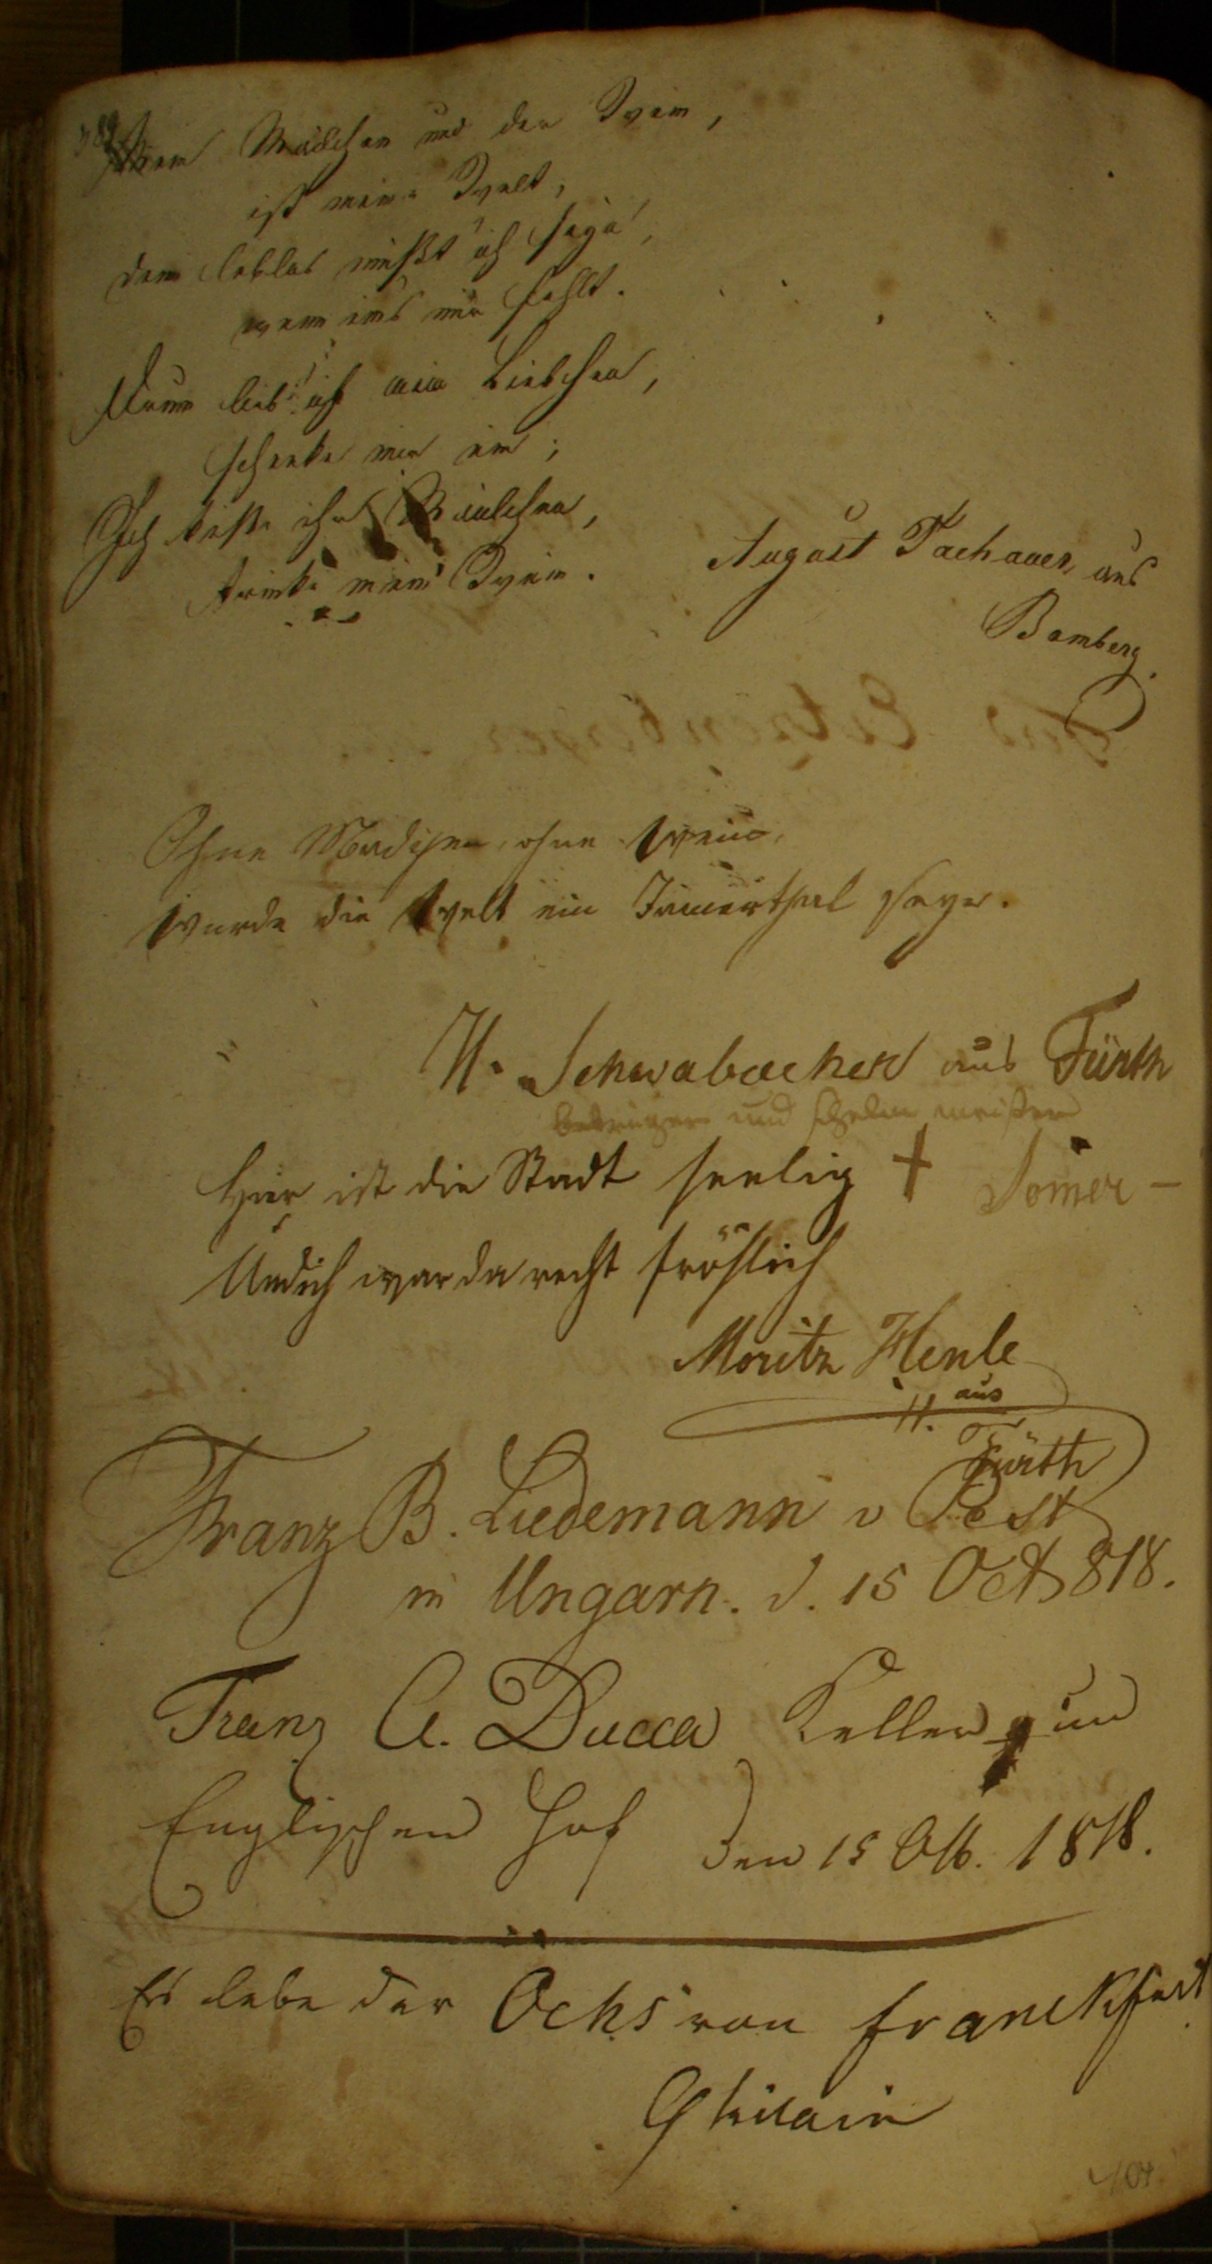 Mein Mädchen und der Wein,
ist meine Welt,
dem leblos müßt' ich seyn,
wenn eins mir fehlt.
Drum lieb' ich mein Liebchen,
schenke mir ein;
Ich küße ihr Mäulchen,
trinke meine Wein.
August Tachauer, aus
Bamberg.
Ohne Madchen, ohne Wein,
Wurde die Welt ein Jammerthal seyn.
H. Schwabacher aus Fürth
betrüger und schelm
Hier ist die Stadt seelig +
Und ich war da recht fröhlich
Moritz Henle
H. aus
Fürth
Franz B. Liedemann v Pest
in Ungarn. d. 15 Oct 818.
Franz A. Ducca Keller im
Englischen Hof den 15 Otb. 1818.
Es lebe der Ochs von franckfurt
Ghilain
104